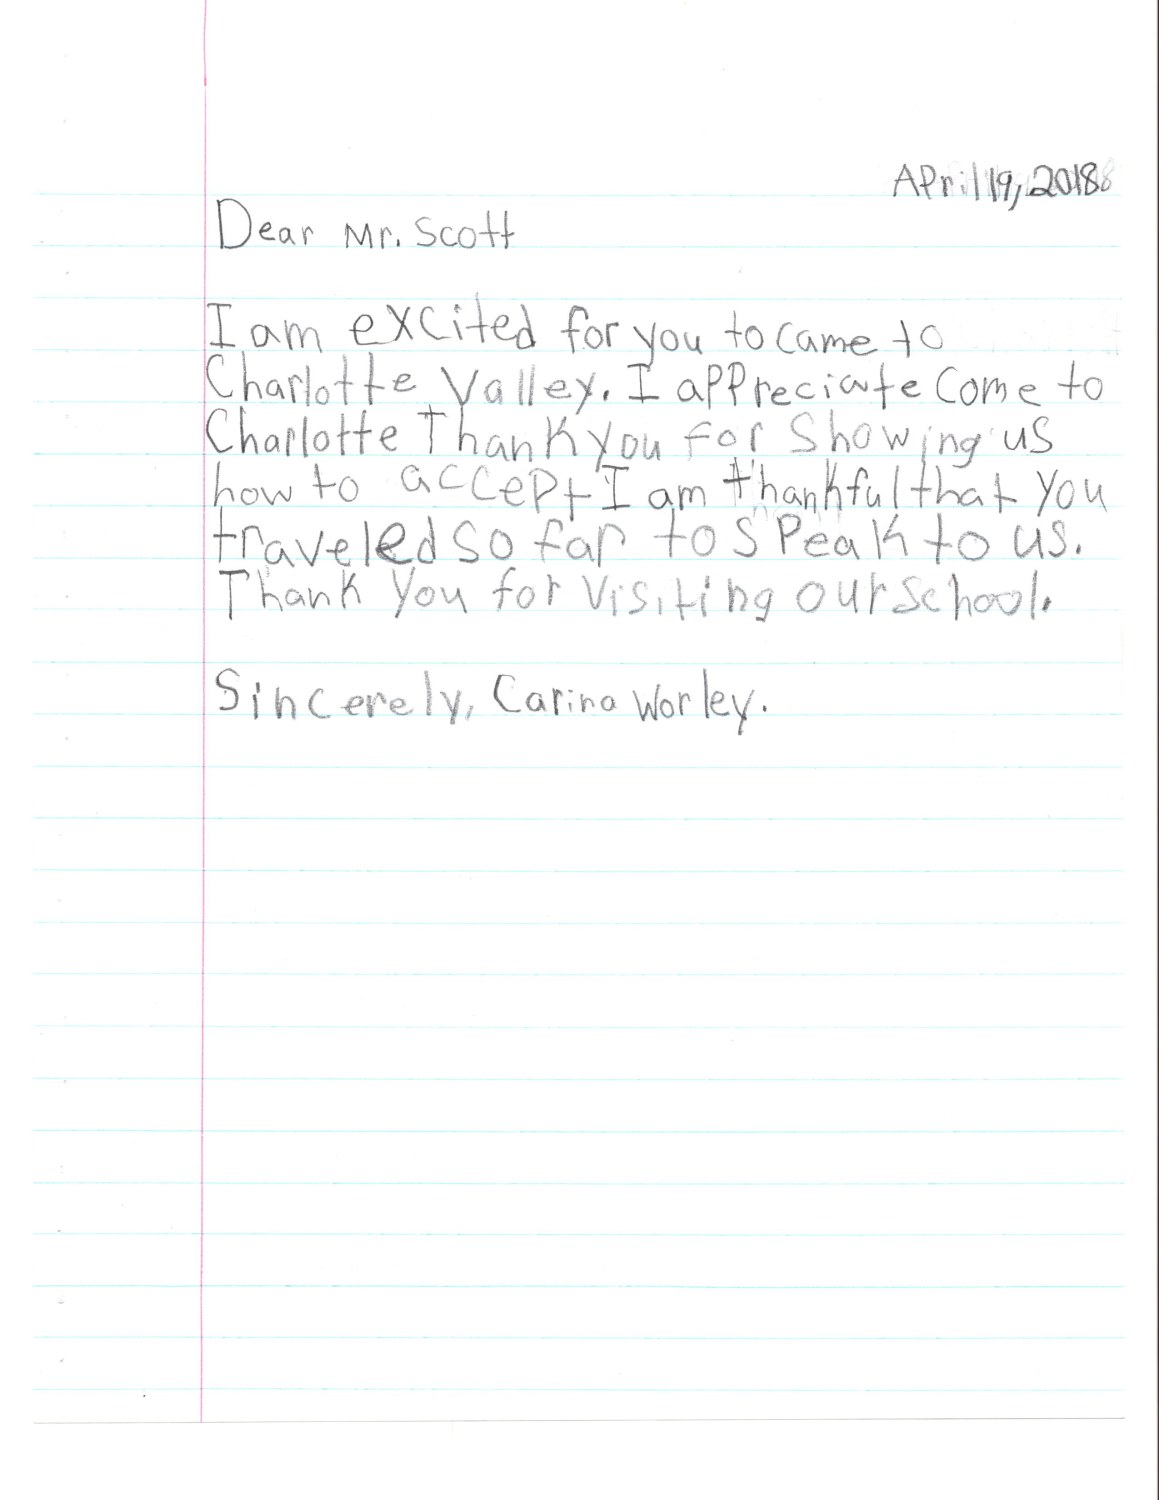 April 19, 2018
Dear Mr. Scott
I am excited for you to came to
Charlotte Valley. I appreciate Come to
Charlotte Thank you for Showing us
how to accept I am thankful that you
traveled so far to speak to us.
Thank You for Visiting our school.
Sincerely, Carina Worley.